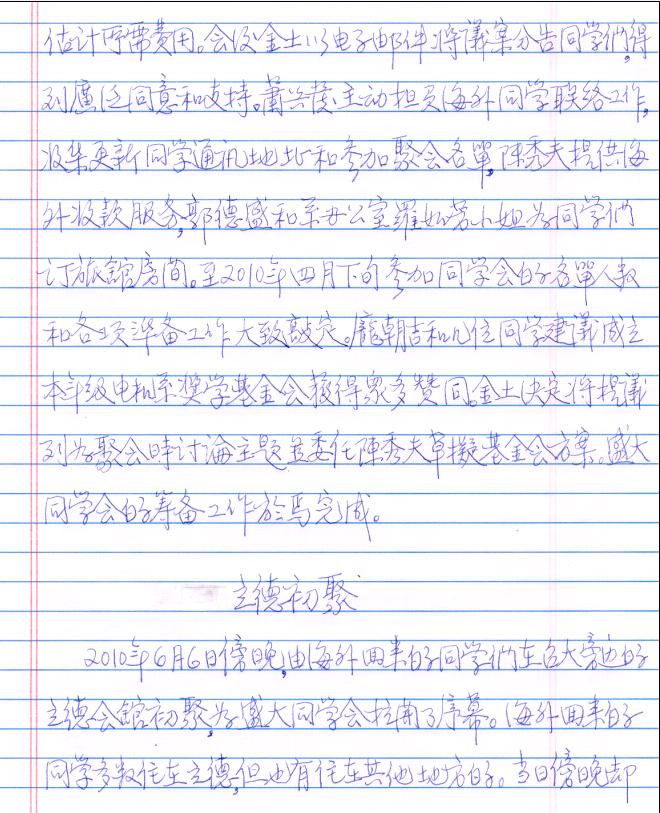 估计所需費用。会後金土以电子邮件将議案分告同学們,得
到廣泛同意和支持。蕭兴茂主动担负海外同学联络工作,
收集更新同学通讯地址和参加聚会名單,陳秀夫提供海
外收款服务,郭德盛和系办公室羅如芳小姐为同学們
订旅館房間。至2010年四月下旬参加同学会的名單人数
和各项準备工作大致敲定。龐朝吉和几位同学建議成立
本年级电机系奖学基金会獲得眾多赞同。金土决定将提議
列为聚会時讨論主題並委任陳秀夫草擬基金会方案。盛大
同学会的筹备工作於焉完成。
立德初聚
2010年6月6日傍晚,由海外回来的同学們在台大旁边的
立德会館初聚,为盛大同学会拉開了序幕。海外回来的
同学多数住在立德,但也有住在其他地方的。当日傍晚却